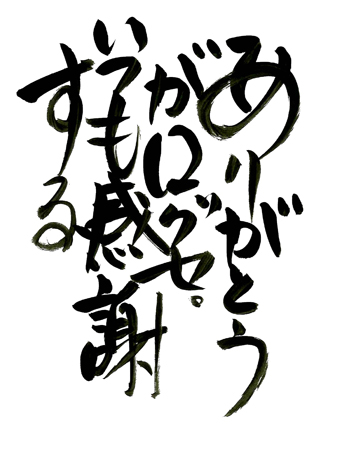 ありがとう
が口グセ。
いつも感謝
する